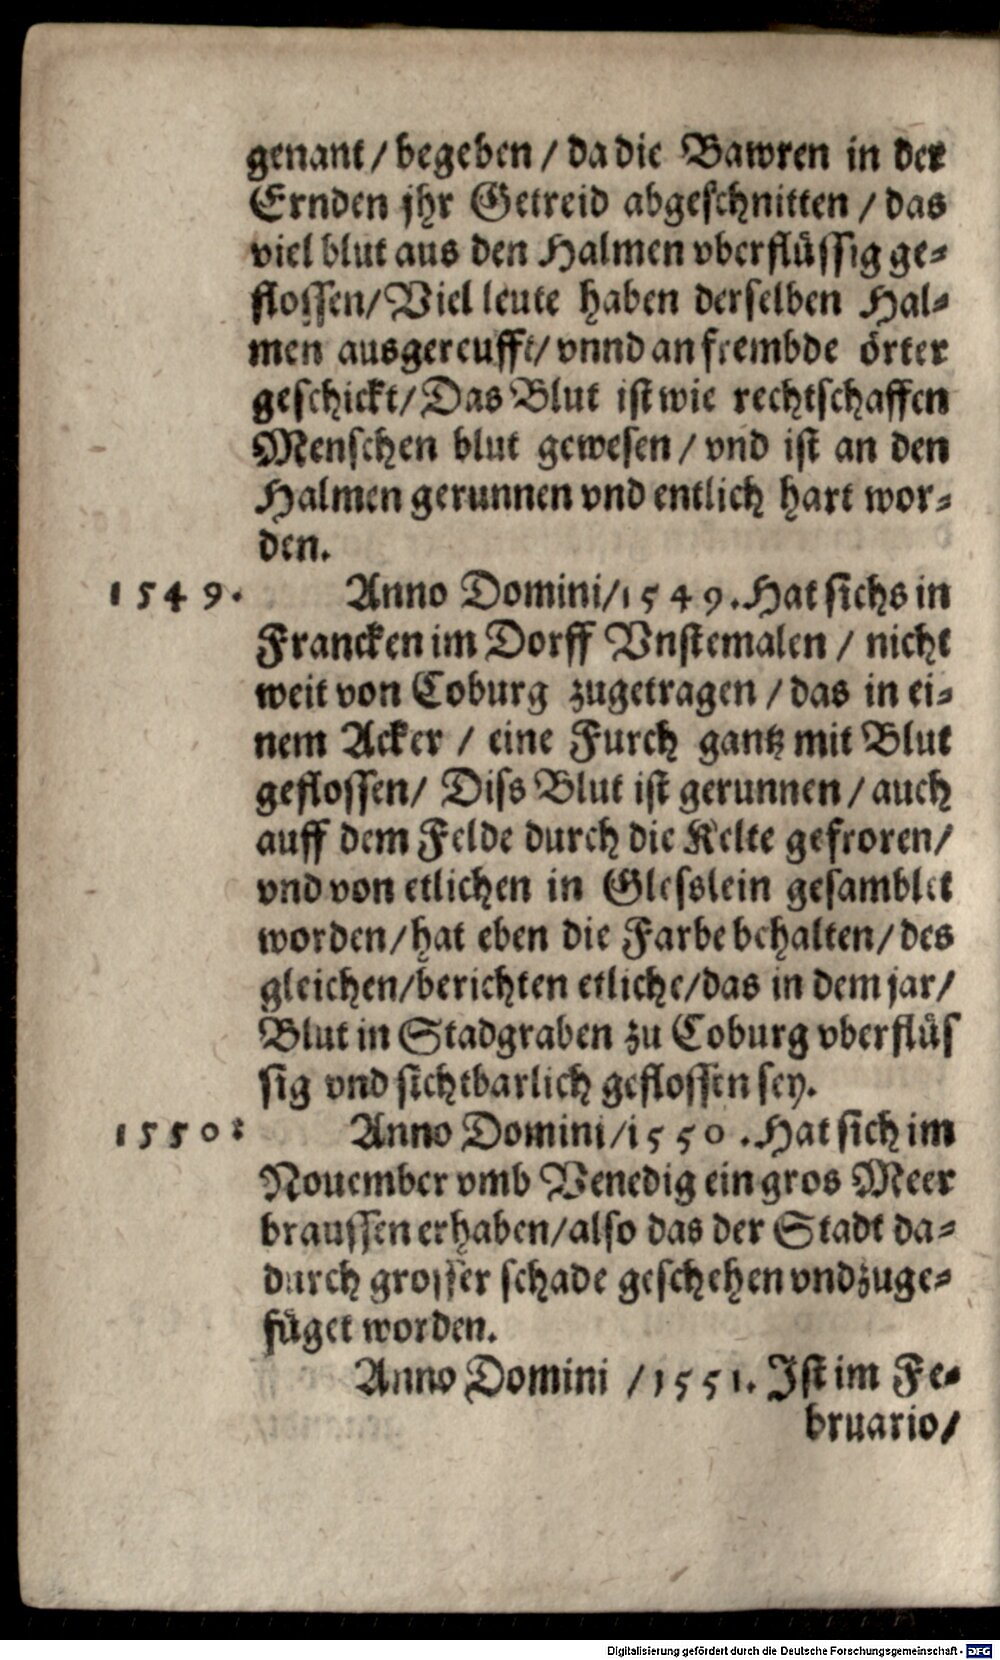 genant / begeben / da die Bawren in der
Ernden jhr Getreid abgeschnitten / das
viel blut aus den Halmen vberflüssig ge-
flossen/ Viel leute haben derselben Hal-
men ausgereufft/ vnnd an frembde örter
geschickt/ Das Blut ist wie rechtschaffen
Menschen blut gewesen / vnd ist an den
Halmen gerunnen vnd entlich hart wor-
den.
1549. Anno Domini/1549. Hat sichs in
Francken im Dorff Vnstemalen / nicht
weit von Coburg zugetragen / das in ei-
nem Acker / eine Furch gantz mit Blut
geflossen/ Diss Blut ist gerunnen / auch
auff dem Felde durch die Kelte gefroren/
vnd von etlichen in Glesslein gesamblet
worden/ hat eben die Farbe behalten/ des
gleichen/berichten etliche/das in dem jar/
Blut in Stadgraben zu Coburg vberflüs
sig vnd sichtbarlich geflossen sey.
1550: Anno Domini/1550. Hat sich im
Nouember vmb Venedig ein gros Meer
braussen erhaben/also das der Stadt da-
durch grosser schade geschehen vnd zuge-
füget worden.
Anno Domini /1551. Ist im Fe-
bruario/
Digitalisierung gefördert durch die Deutsche Forschungsgemeinschaft - DFG